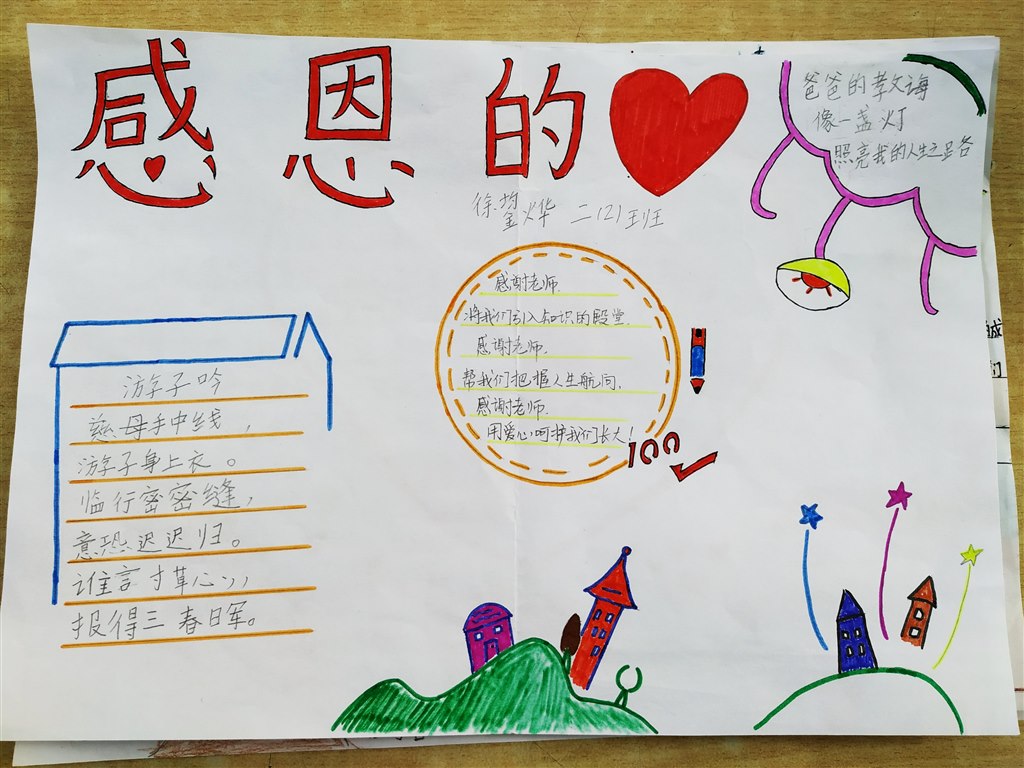 感恩的
爸爸的孝文诲
像一盏灯
照亮我的人生之路
徐鋆烨 二(2)班
感谢老师.
将我们引入知识的殿堂.
感谢老师.
帮我们把握人生航向.
感谢老师.
用爱心呵护我们长大!
100
游子吟
慈母手中线，
游子身上衣。
临行密密缝，
意恐迟迟归。
谁言寸草心，
报得三春日军。